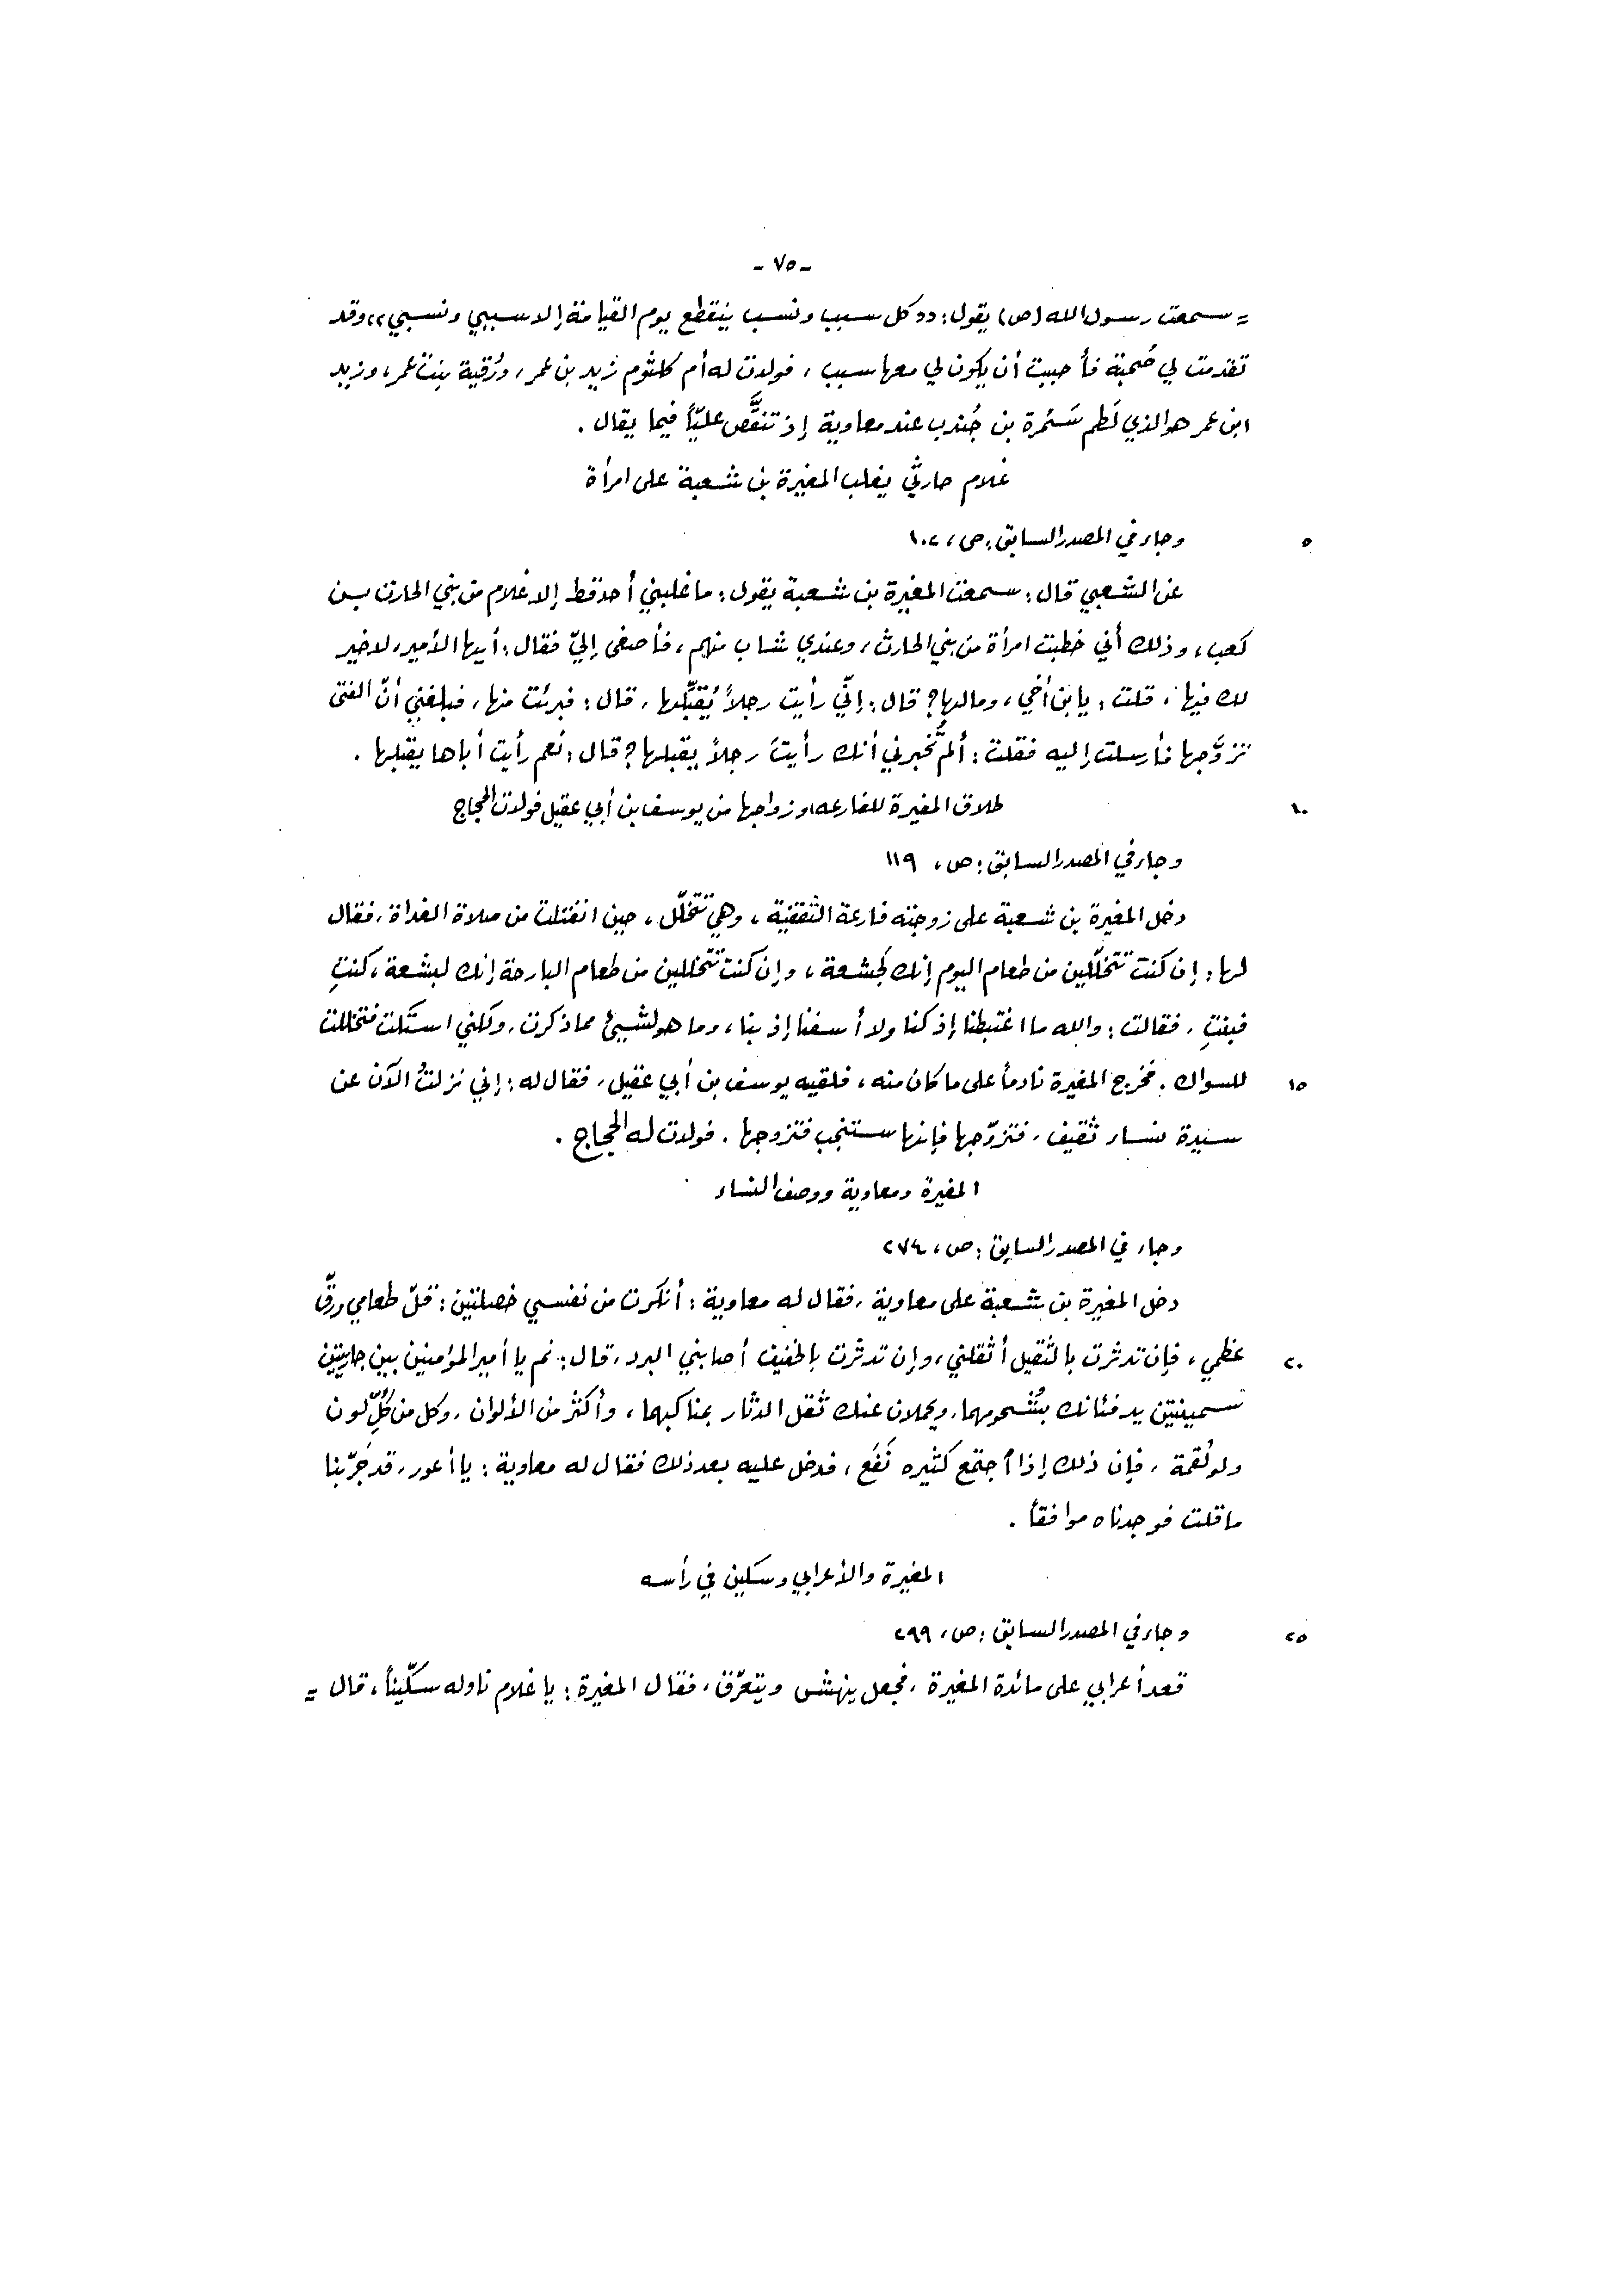 - ٧٥ -
= سمعت رسول الله (ص) يقول: «كل سبب ونسب ينقطع يوم القيامة إلا سببي ونسبي» وقد
تقدمت لي صُحبة فأحببت أن يكون لي معها سبب ، فولدت له أم كلثوم زيد بن عمر ، ورُقية بنت عمر ، وزيد
ابن عمر هو الذي لَطم سَمُرة بن جُندب عند معاوية إذ تنقَّص عليّاً فيما يقال .
غلام حارثي يغلب المغيرة بن شعبة على امرأة
٥ وجاء في المصدر السابق : ص ، ١٠٢
عن الشعبي قال : سمعت المغيرة بن شعبة يقول : ما غلبني أحد قط إلا غلام من بني الحارث بن
كعب ، وذلك أني خطبت امرأة من بني الحارث ، وعندي شاب منهم ، فأصغى إليّ فقال : أيها الأمير ، لا خير
لك فيها ، قلت : يا بن أخي ، وما لها ؟ قال : إنّي رأيت رجلاً يُقبِّلها ، قال : فبرئت منها ، فبلغني أنّ الفتى
تزوَّجها فأرسلت إليه فقلت : ألم تُخبرني أنك رأيتَ رجلاً يقبلها ؟ قال : نعم رأيت أباها يقبلها .
١٠ طلاق المغيرة للفارعه وزواجها من يوسف بن أبي عقيل فولدت الحجاج
وجاء في المصدر السابق : ص ، ١١٩
دخل المغيرة بن شعبة على زوجته فارعة الثقفيّة ، وهي تتخلّل ، حين انفتلت من صلاة الغداة ، فقال
لها : إن كنت تتخلّلين من طعام اليوم إنك لجشعة ، وإن كنت تتخللين من طعام البارحة إنك لبشعة ، كنتِ
فبنتِ ، فقالت : والله ما اغتبطنا إذ كنا ولا أسفنا إذ بنا ، وما هو لشيئ مما ذكرت ، ولكني استكت فتخللت
١٥ للسواك . فخرج المغيرة نادماً على ما كان منه ، فلقيه يوسف بن أبي عقيل ، فقال له : إني نزلتُ الآن عن
سيدة نساء ثقيف ، فتزوّجها فإنها ستنجب فتزوجها . فولدت له الحجاج .
المغيرة ومعاوية ووصف النساء
وجاء في المصدر السابق : ص ، ٢٧٤
دخل المغيرة بن شعبة على معاوية ، فقال له معاوية : أنكرت من نفسي خصلتين : قلّ طعامي ورقّ
٢٠ عظمي ، فإن تدثرت بالثقيل أثقلني ، وإن تدثرت بالخفيف أصابني البرد ، قال : نم يا أمير المؤمنين بين جاريتين
سمينتين يدفئانك بشُحومهما ، ويحملان عنك ثقل الدثار بمناكبهما ، وأكثر من الألوان ، وكل من كُلّ لون
ولو لُقمة ، فإن ذلك إذا أجتمع كثيره نَفَع ، فدخل عليه بعد ذلك فقال له معاوية : يا أعور ، قد جَرّبنا
ما قلت فوجدناه موافقاً .
المغيرة والأعرابي وسكين في رأسه
٢٥ وجاء في المصدر السابق : ص ، ٢٩٩
قعد أعرابي على مائدة المغيرة ، فجعل ينهش ويتعرّق ، فقال المغيرة : يا غلام ناوله سكّيناً ، قال =